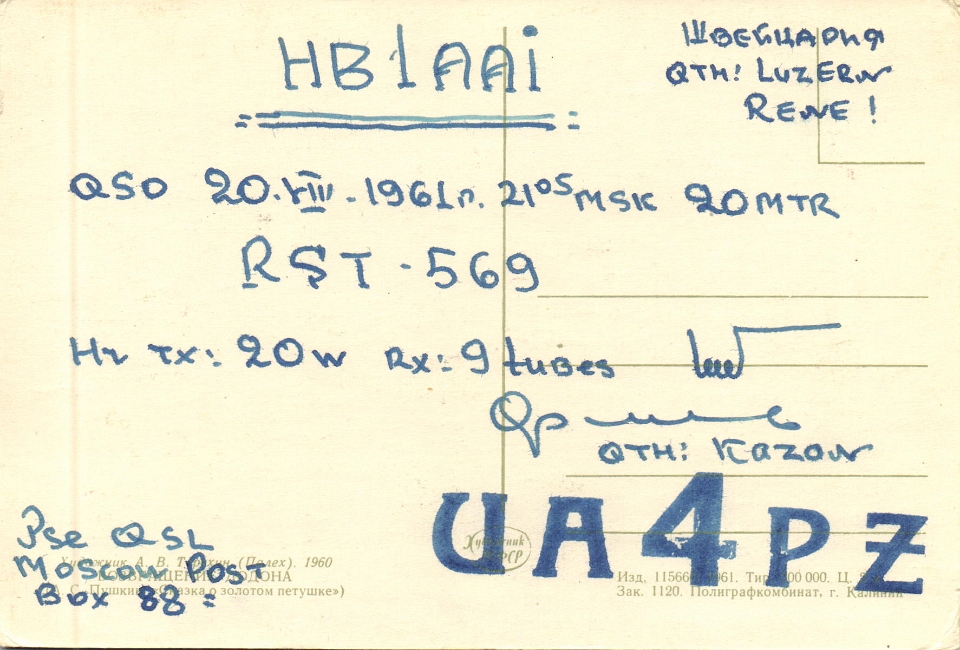 HB1AAi
Швейцария
QTH: LUZERN
RENE !
QSO 20.VIII.-1961г. 21⁰⁵ MSK 20 MTR
RST - 569
Hr TX: 20W RX: 9 tubes
QTH: KAZAN
UA4PZ
Pse QSL
Moscow Post
Box 88 =
Художник А. В. (Палех). 1960
(А. С. Пушкин «Сказка о золотом петушке»)
Художник
РСФСР
Изд. 1961. Тир. 000. Ц.
Зак. 1120. Полиграфкомбинат, г. Калинин